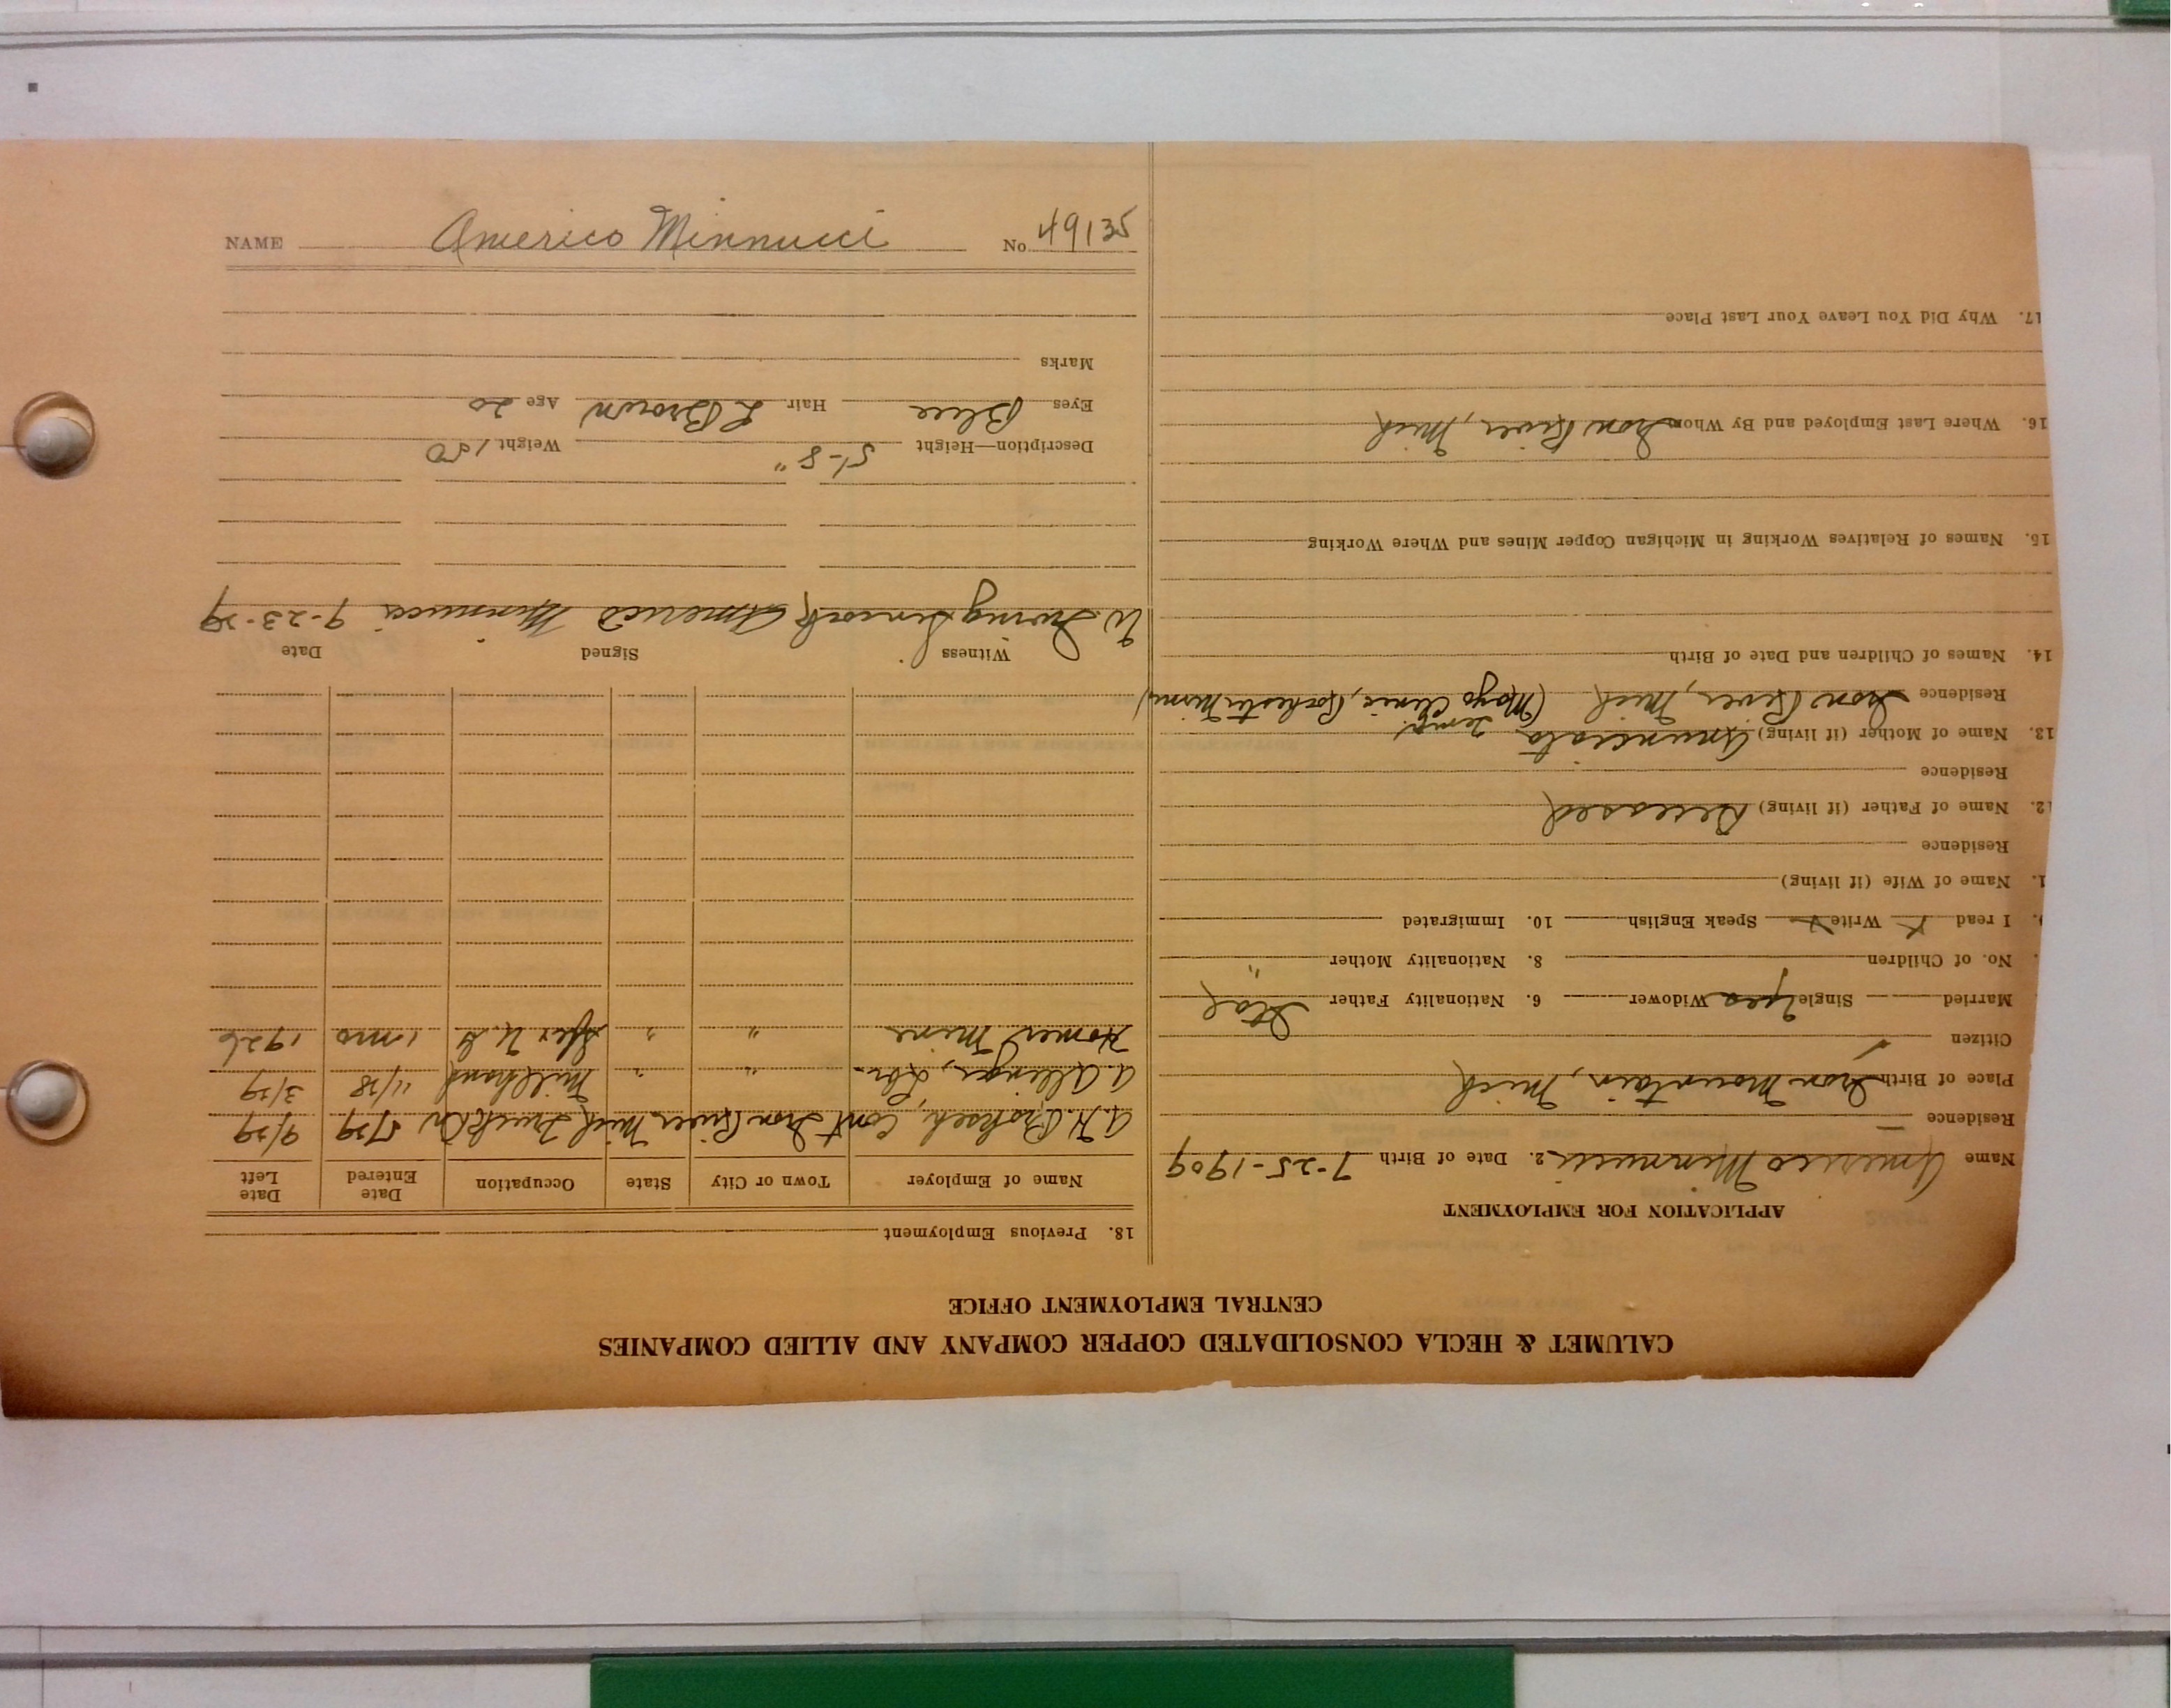 CALUMET & HECLA CONSOLIDATED COPPER COMPANY AND ALLIED COMPANIES
CENTRAL EMPLOYMENT OFFICE
APPLICATION FOR EMPLOYMENT
Name Americo Minnucci 2. Date of Birth 7-25-1909
Residence
Place of Birth Iron Mountain, Mich
Citizen ✓
Married Single Yes Widower 6. Nationality Father Ital
No. of Children 8. Nationality Mother "
I read x Write x Speak English 10. Immigrated
1. Name of Wife (if living)
Residence
2. Name of Father (if living) Deceased
Residence
13. Name of Mother (if living) Anunciata
Residence Iron River, Mich (Mayo Clinic, Rochester Minn)
Temp.
14. Names of Children and Date of Birth
15. Names of Relatives Working in Michigan Copper Mines and Where Working
16. Where Last Employed and By Whom Iron River, Mich
17. Why Did You Leave Your Last Place
18. Previous Employment
Name of Employer Town or City State Occupation Date Entered Date Left
A.H. Cont Iron River Mich Truck Dr 5/29 9/29
A. " " Millhand 11/28 3/29
Homer Mine " " U.G. 1 mo 1926
Witness Signed Date
W. Irving Americo Minnucci 9-23-29
Description—Height 5'-8" Weight 150
Eyes Blue Hair L Brown Age 20
Marks
NAME Americo Minnucci No 49135